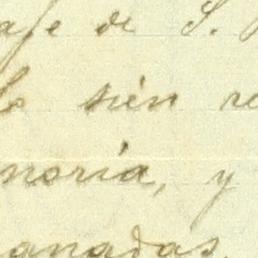 aje de S.
lo sién re
noria, y
anadas,